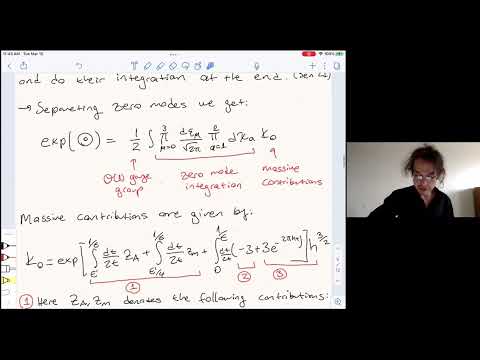 11:43 AM Tue Mar 15
and do their integration at the end. (Sen
→ Separating zero modes we get:
exp(◎) = 1/2 ∫ ∏_{μ=0}^{3} dξ_μ/√2π ∏_{α=1}^{8} dχ_α K_0
O(1) gauge group. zero mode integration massive contributions
Massive contributions are given by:
K_0 = exp[∫_{ε}^{1/ε} dt/2t Z_A + ∫_{ε/4}^{1/ε} dt/2t Z_M + ∫_{0}^{1/ε} dt/2t (-3+3e^{-2πht})] h^{3/2}
① ② ③
① Here Z_A, Z_M denotes the following contributions: